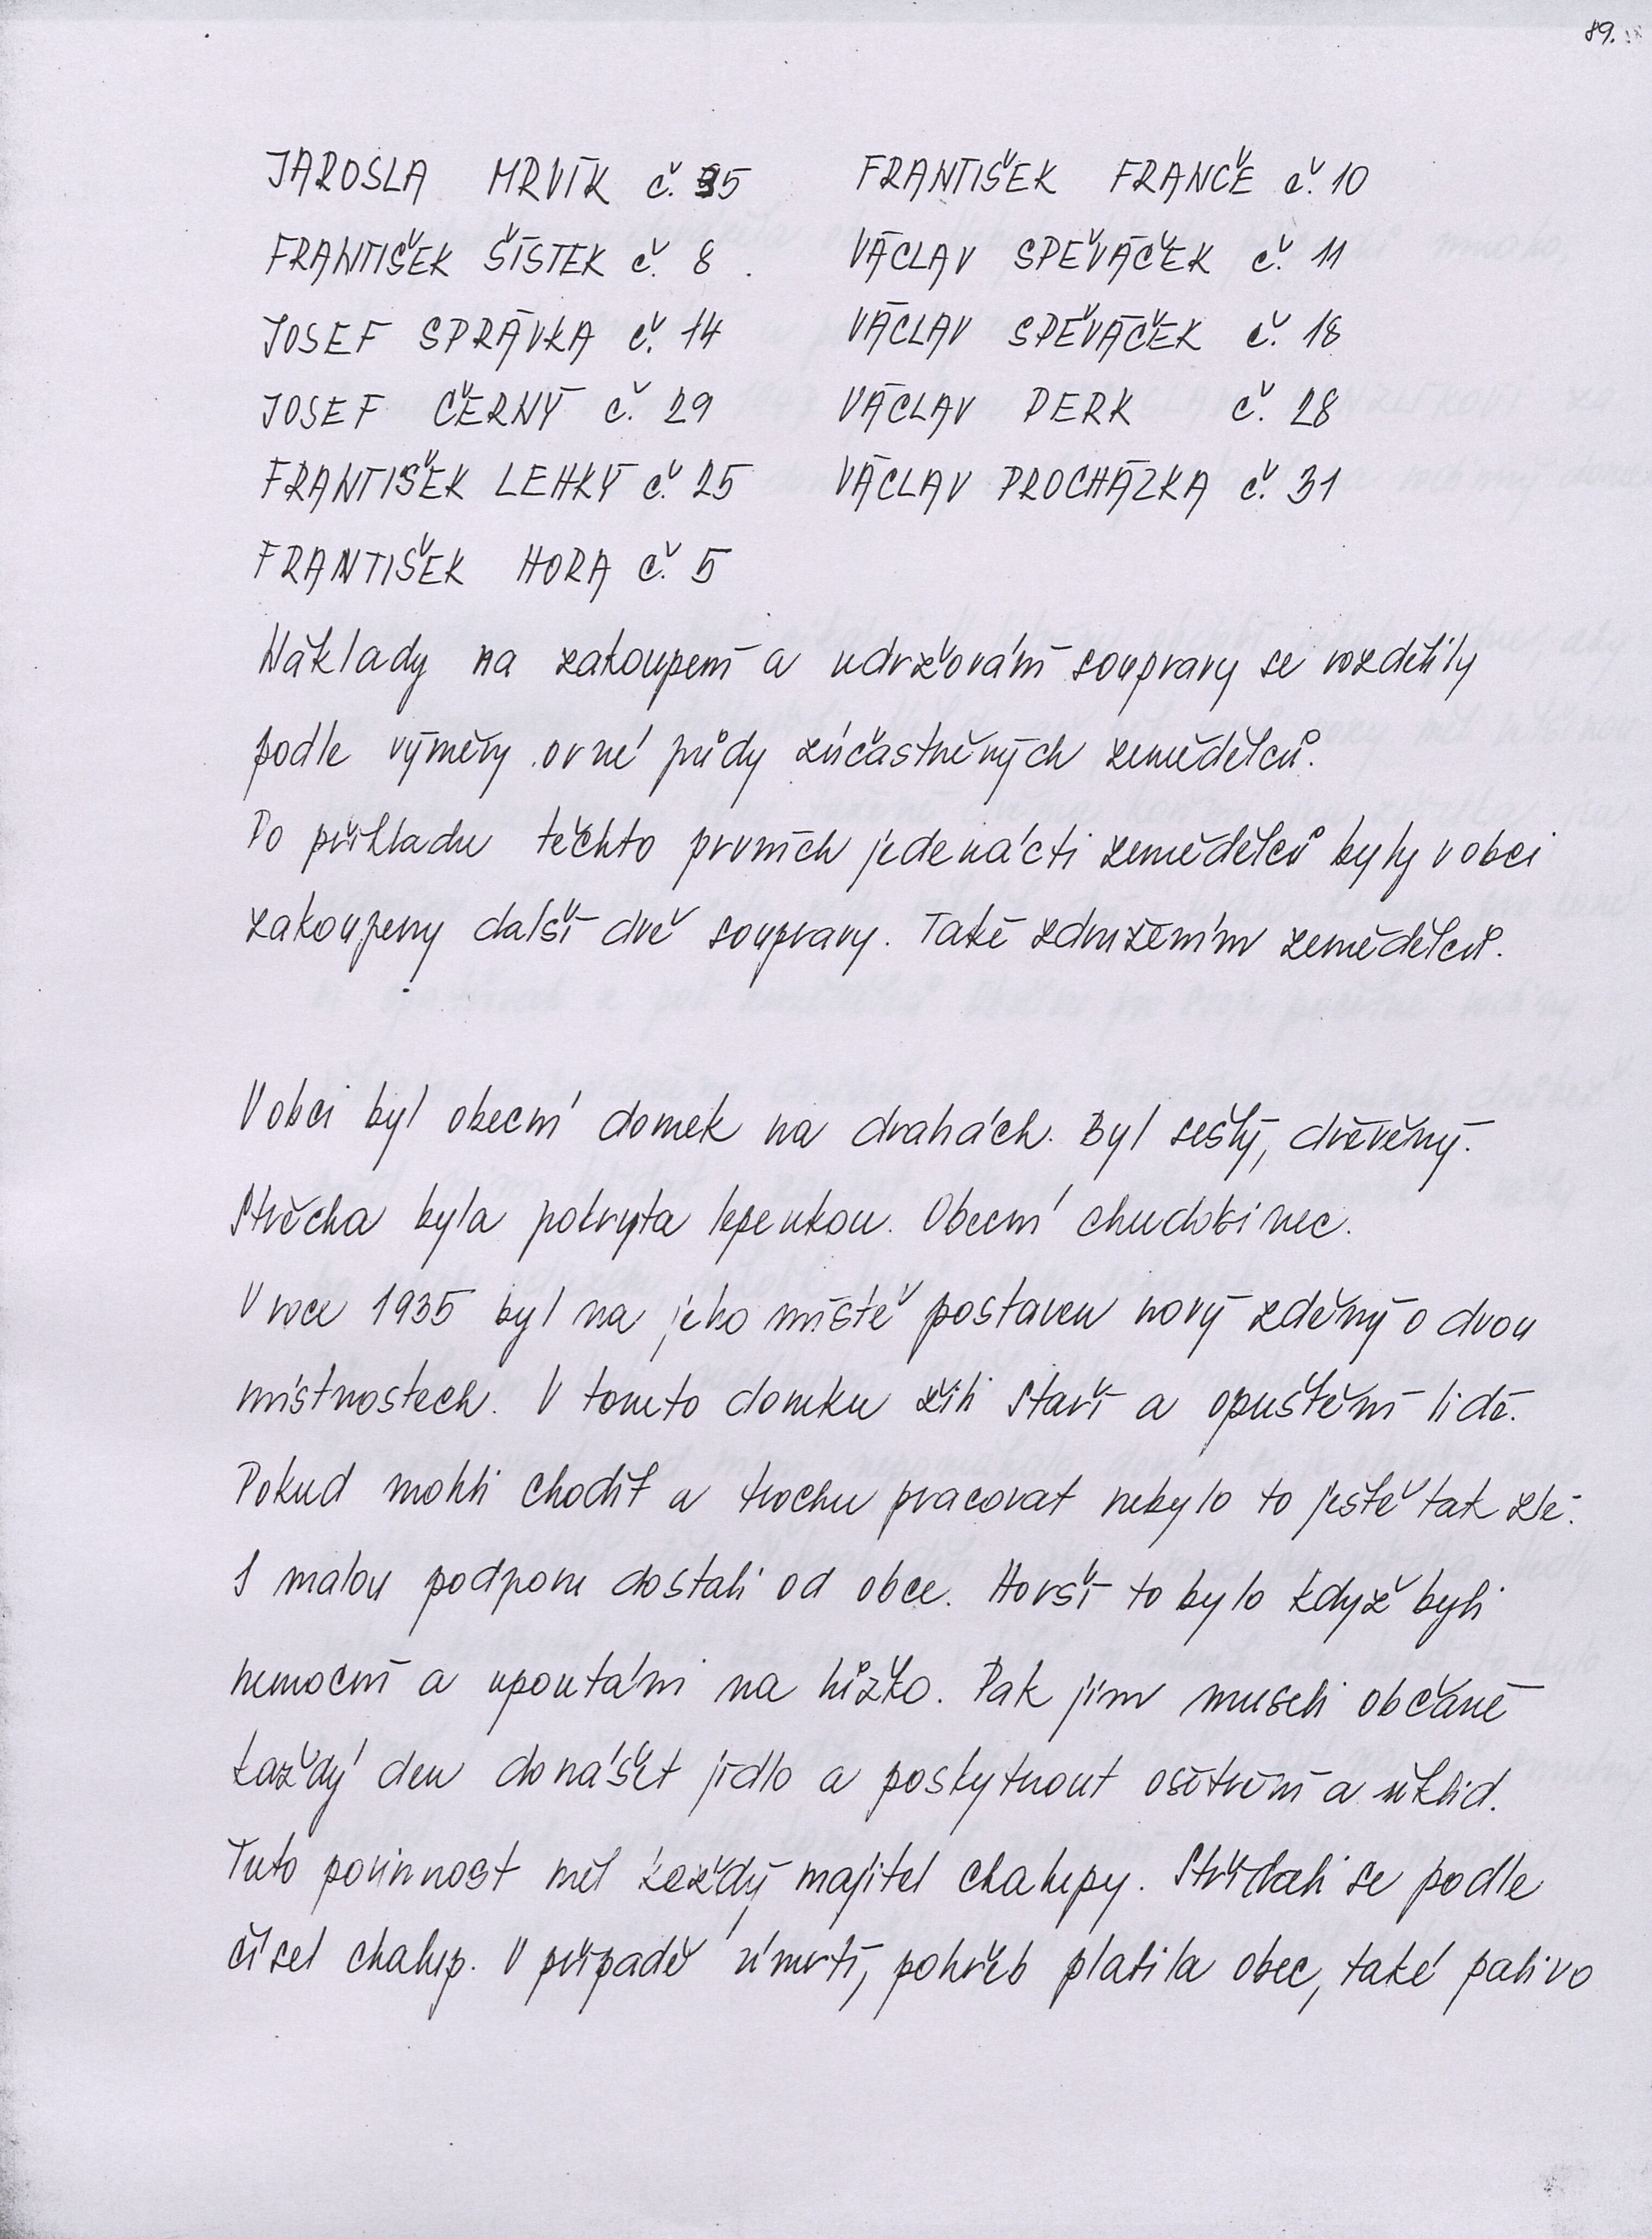 89.
JAROSLA MRVÍK č. 35 FRANTIŠEK FRANCE č. 10
FRANTIŠEK ŠÍSTEK č. 8 VÁCLAV SPĚVÁČEK č. 11
JOSEF SPRÁVKA č. 14 VÁCLAV SPĚVÁČEK č. 18
JOSEF ČERNÝ č. 29 VÁCLAV PERK č. 28
FRANTIŠEK LEHKÝ č. 25 VÁCLAV PROCHÁZKA č. 31
FRANTIŠEK HORA č. 5
Náklady na zakoupení a udržování soupravy se rozdělily
podle výměry orné půdy zúčastněných zemědělců.
Po příkladu těchto prvních jedenácti zemědělců byly v obci
zakoupeny další dvě soupravy. Také združením zemědělců.
V obci byl obecní domek na drahách. Byl sešlý, dřevěný.
Střecha byla pokryta lepenkou. Obecní chudobinec.
V roce 1935 byl na jeho místě postaven nový zděný o dvou
místnostech. V tomto domku žili staří a opuštění lidé.
Pokud mohli chodit a trochu pracovat nebylo to ještě tak zlé.
I malou podporu dostali od obce. Horší to bylo když byli
nemocní a upoutáni na lůžko. Pak jim museli občané
každý den donášet jídlo a poskytnout ošetření a úklid.
Tuto povinnost měl každý majitel chalupy. Střídali se podle
čísel chalup. V případě úmrtí, pohřeb platila obec, také palivo